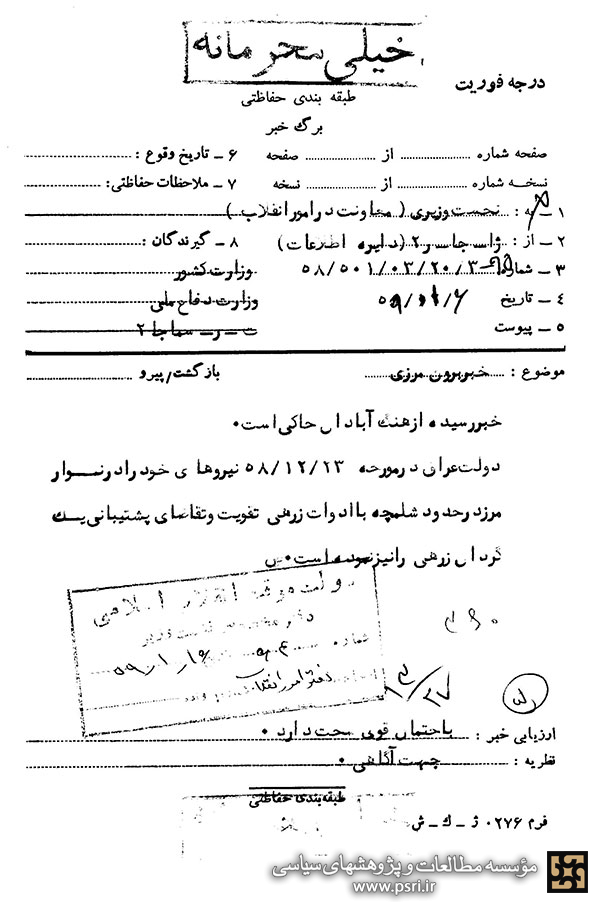 خیلی محرمانه
درجه فوریت
طبقه بندی حفاظتی
برگ خبر
صفحه شماره .......... از .......... صفحه
نسخه شماره .......... از .......... نسخه
۱ ـ به : نخست وزیری ( معاونت در امور انقلاب )
۲ ـ از : ژاندارمری ج.ا.ا ر۲ (دایره اطلاعات)
۳ ـ شماره ۵۸/۵۰۱/۰۳/۲۰/۳
۴ ـ تاریخ ۵۹/۰۱/۶
۵ ـ پیوست
۶ ـ تاریخ وقوع :
۷ ـ ملاحظات حفاظتی :
۸ ـ گیرندگان :
وزارت کشور
وزارت دفاع ملی
سماجا ۲
موضوع : خبر برون مرزی
بازگشت/پیرو
خبر رسیده از هنگ آبادان حاکی است .
دولت عراق در مورخه ۵۸/۱۲/۲۳ نیروهای خود را در نوار
مرز در حدود شلمچه با ادوات زرهی تقویت و تقاضای پشتیبانی یک
گردان زرهی را نیز نموده است .
دولت موقت انقلاب اسلامی
شماره
۵۹/۱/۱۶
دفتر امور انقلاب
ارزیابی خبر : باحتمال قوی صحت دارد .
نظریه : جهت آگاهی .
طبقه بندی حفاظتی
فرم ۰۲۷۶ ژ ـ ک ـ ش
مؤسسه مطالعات و پژوهشهای سیاسی
www.psri.ir